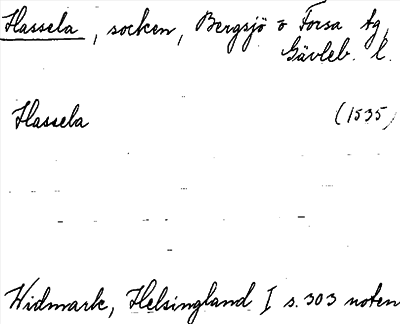 Hassela, socken, Bergsjö o Forsa tg,
Gävleb. l.
Hassela (1535)
Widmark, Helsingland I s. 303 noten